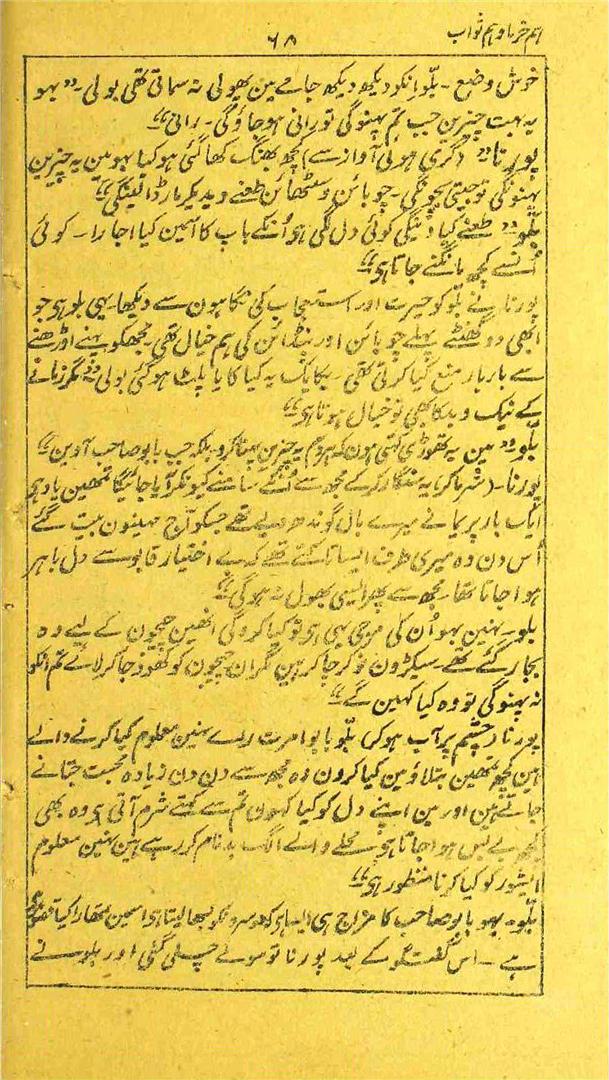 ہم خرما و ہم ثواب
۶۸
خوش وضع ۔ بلّو انکو دیکھ دیکھ جامے مین پھولی نہ سماتی تھی بولی ۔ ” بہو
یہ بہت چیزین جب تم پہنوگی تو رانی ہو جاؤگی ۔ رانی “
پورنا ” (گری ہوئی آواز سے) کچھ بھنگ کھا گئی ہو کیا بہو مین یہ چیزین
پہنونگی تو جیتی بچونگی ۔ چوبائن و سٹھائن طعنے دیدیکر مار ڈالینگی “
بلّو ” طعنے کیا دینگی کوئی دل لگی ہو اُنکے باپ کا اسمین کیا اجارا ۔ کوئی
اُنسے کچھ مانگنے جاتا ہو “
پورنا نے بلّو کو حیرت اور استعجاب کی نگاہون سے دیکھا ۔ یہی بلو ہی جو
ابھی دو گھنٹے پہلے چوبائن اور پنڈائن کی ہم خیال تھی ۔ مجھکو پہنے اوڑھنے
سے بار بار منع کیا کرتی تھی ۔ یکایک یہ کیا کایا پلٹ ہو گئی بولی ” مگر زمانے
کے نیک و بد کا بھی تو خیال ہوتا ہو “
بلّو ” مین یہ تھوڑی کہتی ہون کہ ہر دم یہ چیزین پہنا کرو بلکہ جب بابو صاحب آوین “
پورنا ۔ (شرما کر) یہ سنگار کرکے مجھ سے اُنکے سامنے کیونکر آیا جائیگا تمھین یاد ہو
ایک بار پریما نے میرے بال گوندھ دیے تھے جسکو آج مہینون بیت گئے
اُس دن وہ میری طرف ایسا تاکتے تھے کہ بے اختیار قابو سے دل باہر
ہوا جاتا تھا ۔ مجھ سے پھر ایسی بھول نہ ہوگی “
بلو ۔ نہین بہو اُن کی مرضی یہی ہو تو کیا کروگی انھین چیزون کے لیے وہ
بجار گئے تھے ۔ سیکڑون نوکر چاکر ہین مگر ان چیزون کو خود جا کر لائے تم انکو
نہ پہنوگی تو وہ کیا کہین گے “
پورنا (چشم پر آب ہو کر) بلّو بابو امرت رائے نہین معلوم کیا کرنے والے
ہین کچھ تمھین بتلاؤ مین کیا کرون وہ مجھ سے دن دن زیادہ محبت جتاتے
جاتے ہین اور مین اپنے دل کو کیا کہون تم سے کہتے شرم آتی ہو وہ بھی
کچھ بے بس ہوا جاتا ہو محلے والے الگ بدنام کر رہے ہین نہین معلوم
ایشور کو کیا کرنا منظور ہو “
بلّو ۔ بہو بابو صاحب کا مزاج ہی ایسا ہو کہ دوسرونکو لبھا لیتا ہو اسمین تمھارا کیا قصور
ہے ۔ اس گفتگو کے بعد پورنا تو سونے چلی گئی اور بلو نے